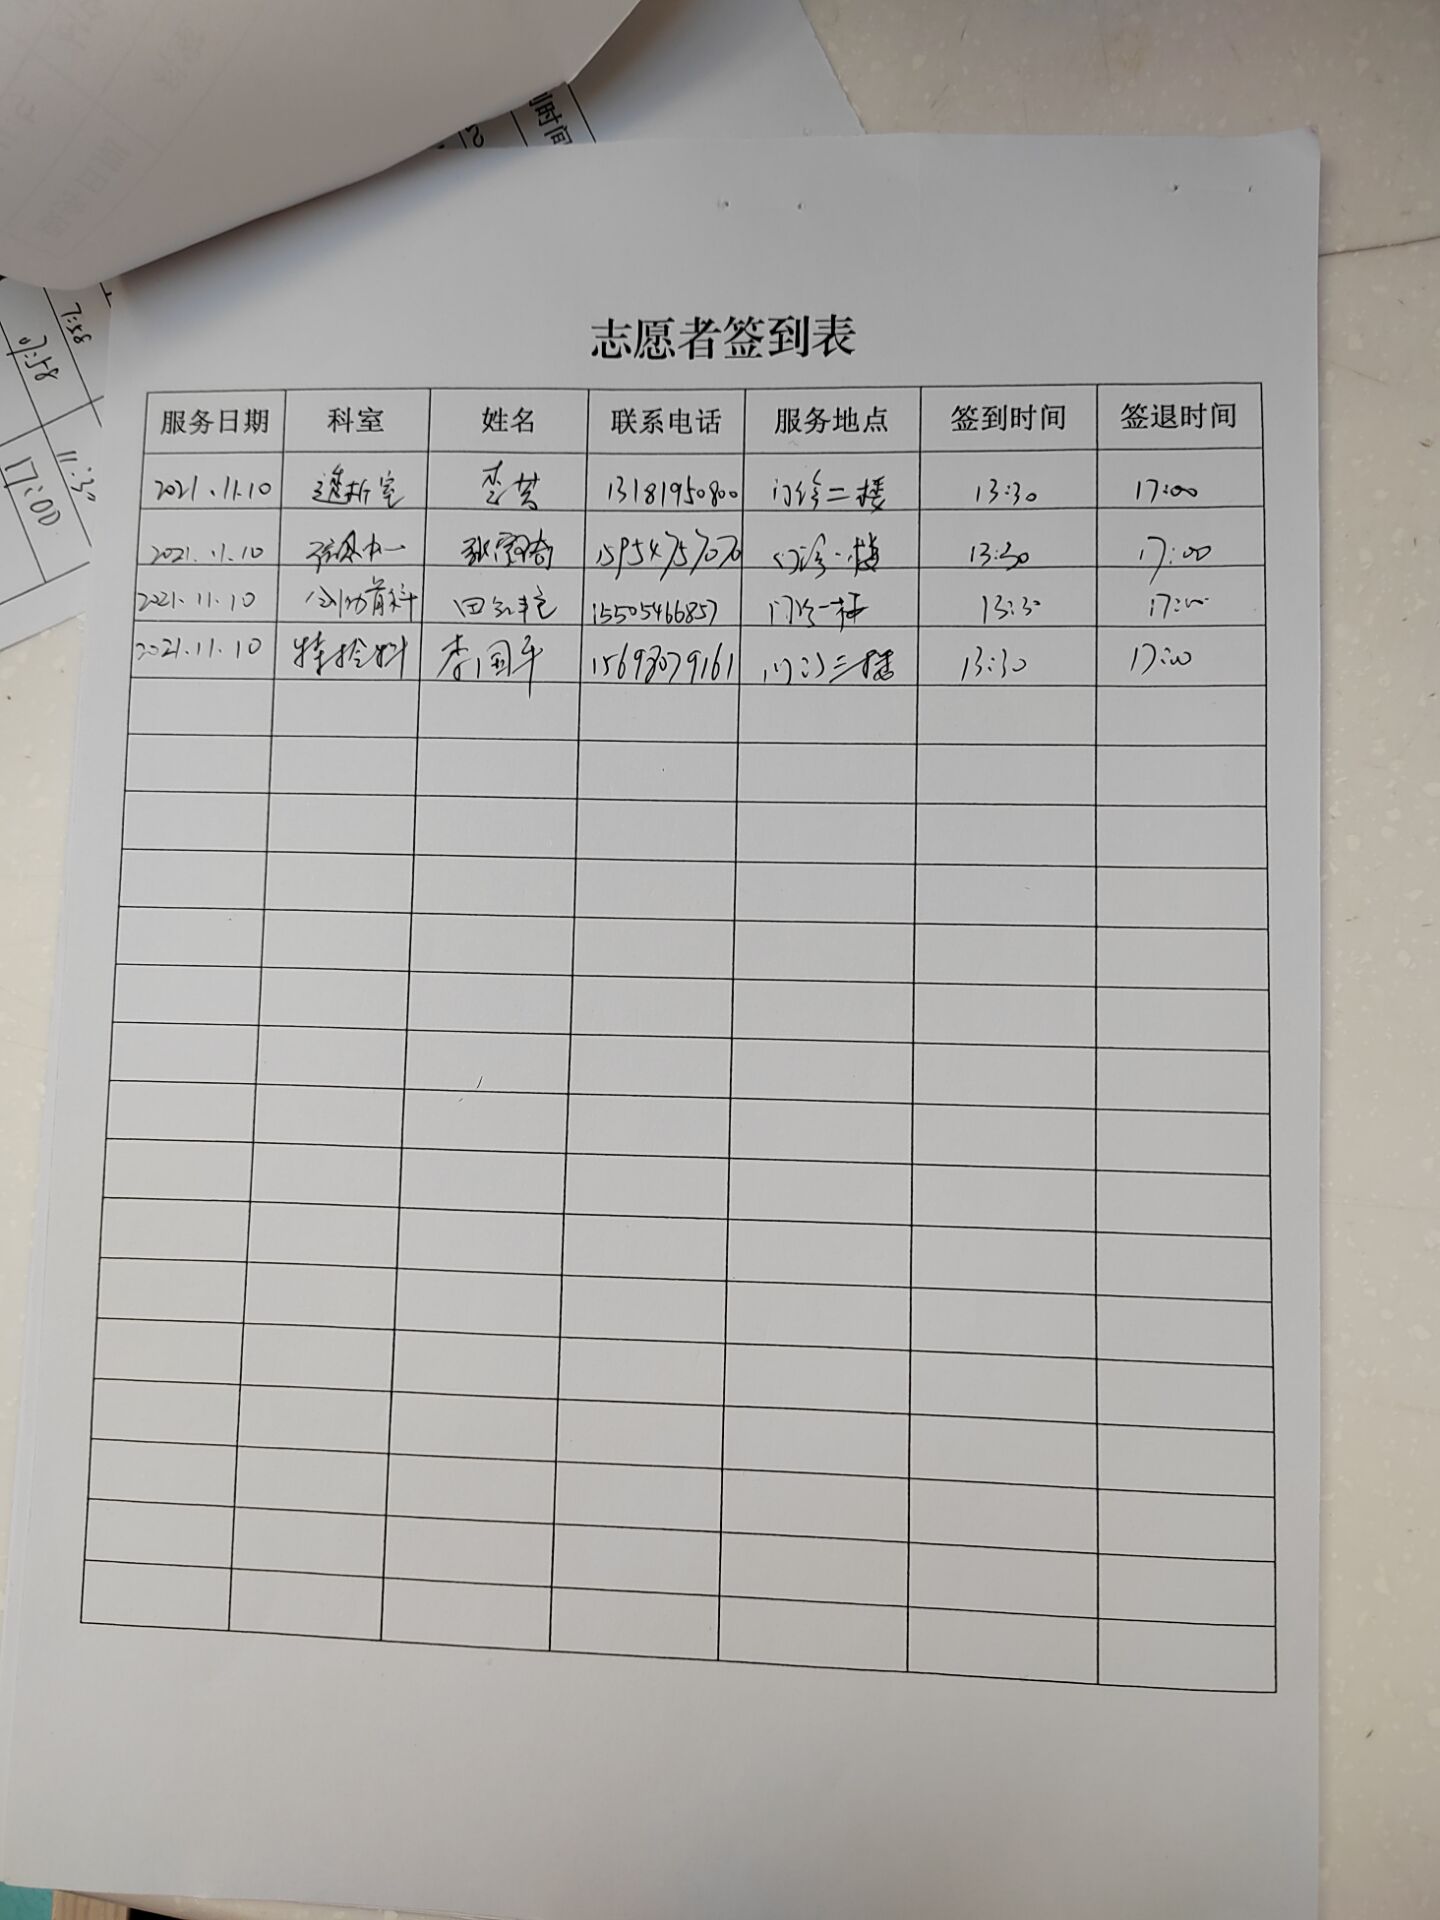 间时间
7:58
07:58
11:30
17:00
志愿者签到表
服务日期 科室 姓名 联系电话 服务地点 签到时间 签退时间
2021.11.10 透析室 李芸 13181950800 门诊二楼 13:30 17:00
2021.11.10 15954757070 门诊一楼 13:30 17:00
2021.11.10 15505466857 门诊一楼 13:30 17:00
2021.11.10 特检科 李国平 15693079161 门诊三楼 13:30 17:00